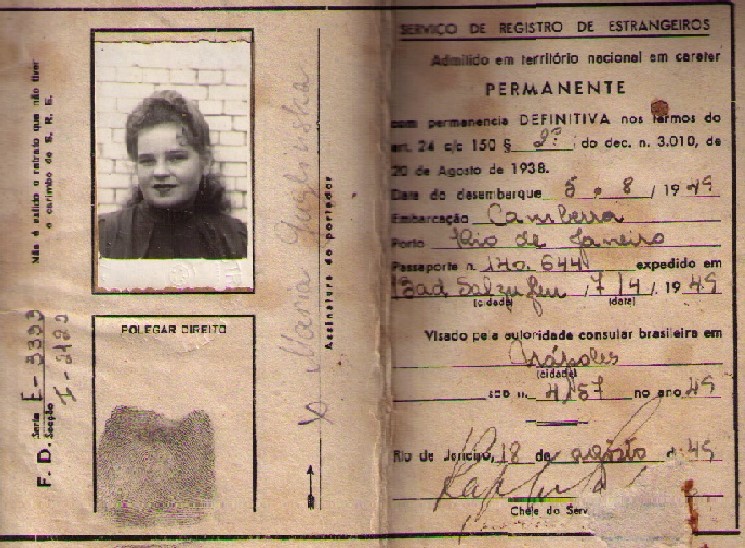 Não é valido o retrato que não tiver
o carimbo de S. R. E.
F. D. Serie E - 3333
Secção I - 2122
POLEGAR DIREITO
Maria
Assinatura do portador
SERVIÇO DE REGISTRO DE ESTRANGEIROS
Admitido em território nacional em carater
PERMANENTE
com permanencia DEFINITIVA nos termos do
art. 24 c/c 150 § 2º do dec. n. 3.010, de
20 de Agosto de 1938.
Data do desembarque 5 . 8 / 19 49
Embarcação Camberra
Porto Rio de Janeiro
Passaporte n. 140.644 expedido em
Bad Salzuflen , 7 / 4 /. 19 49
(cidade) (data)
Visado pela autoridade consular brasileira em
Nápoles
(cidade)
sob n. 4157 no ano 49
Rio de Janeiro, 18 de agôsto 49
Chefe do Serv